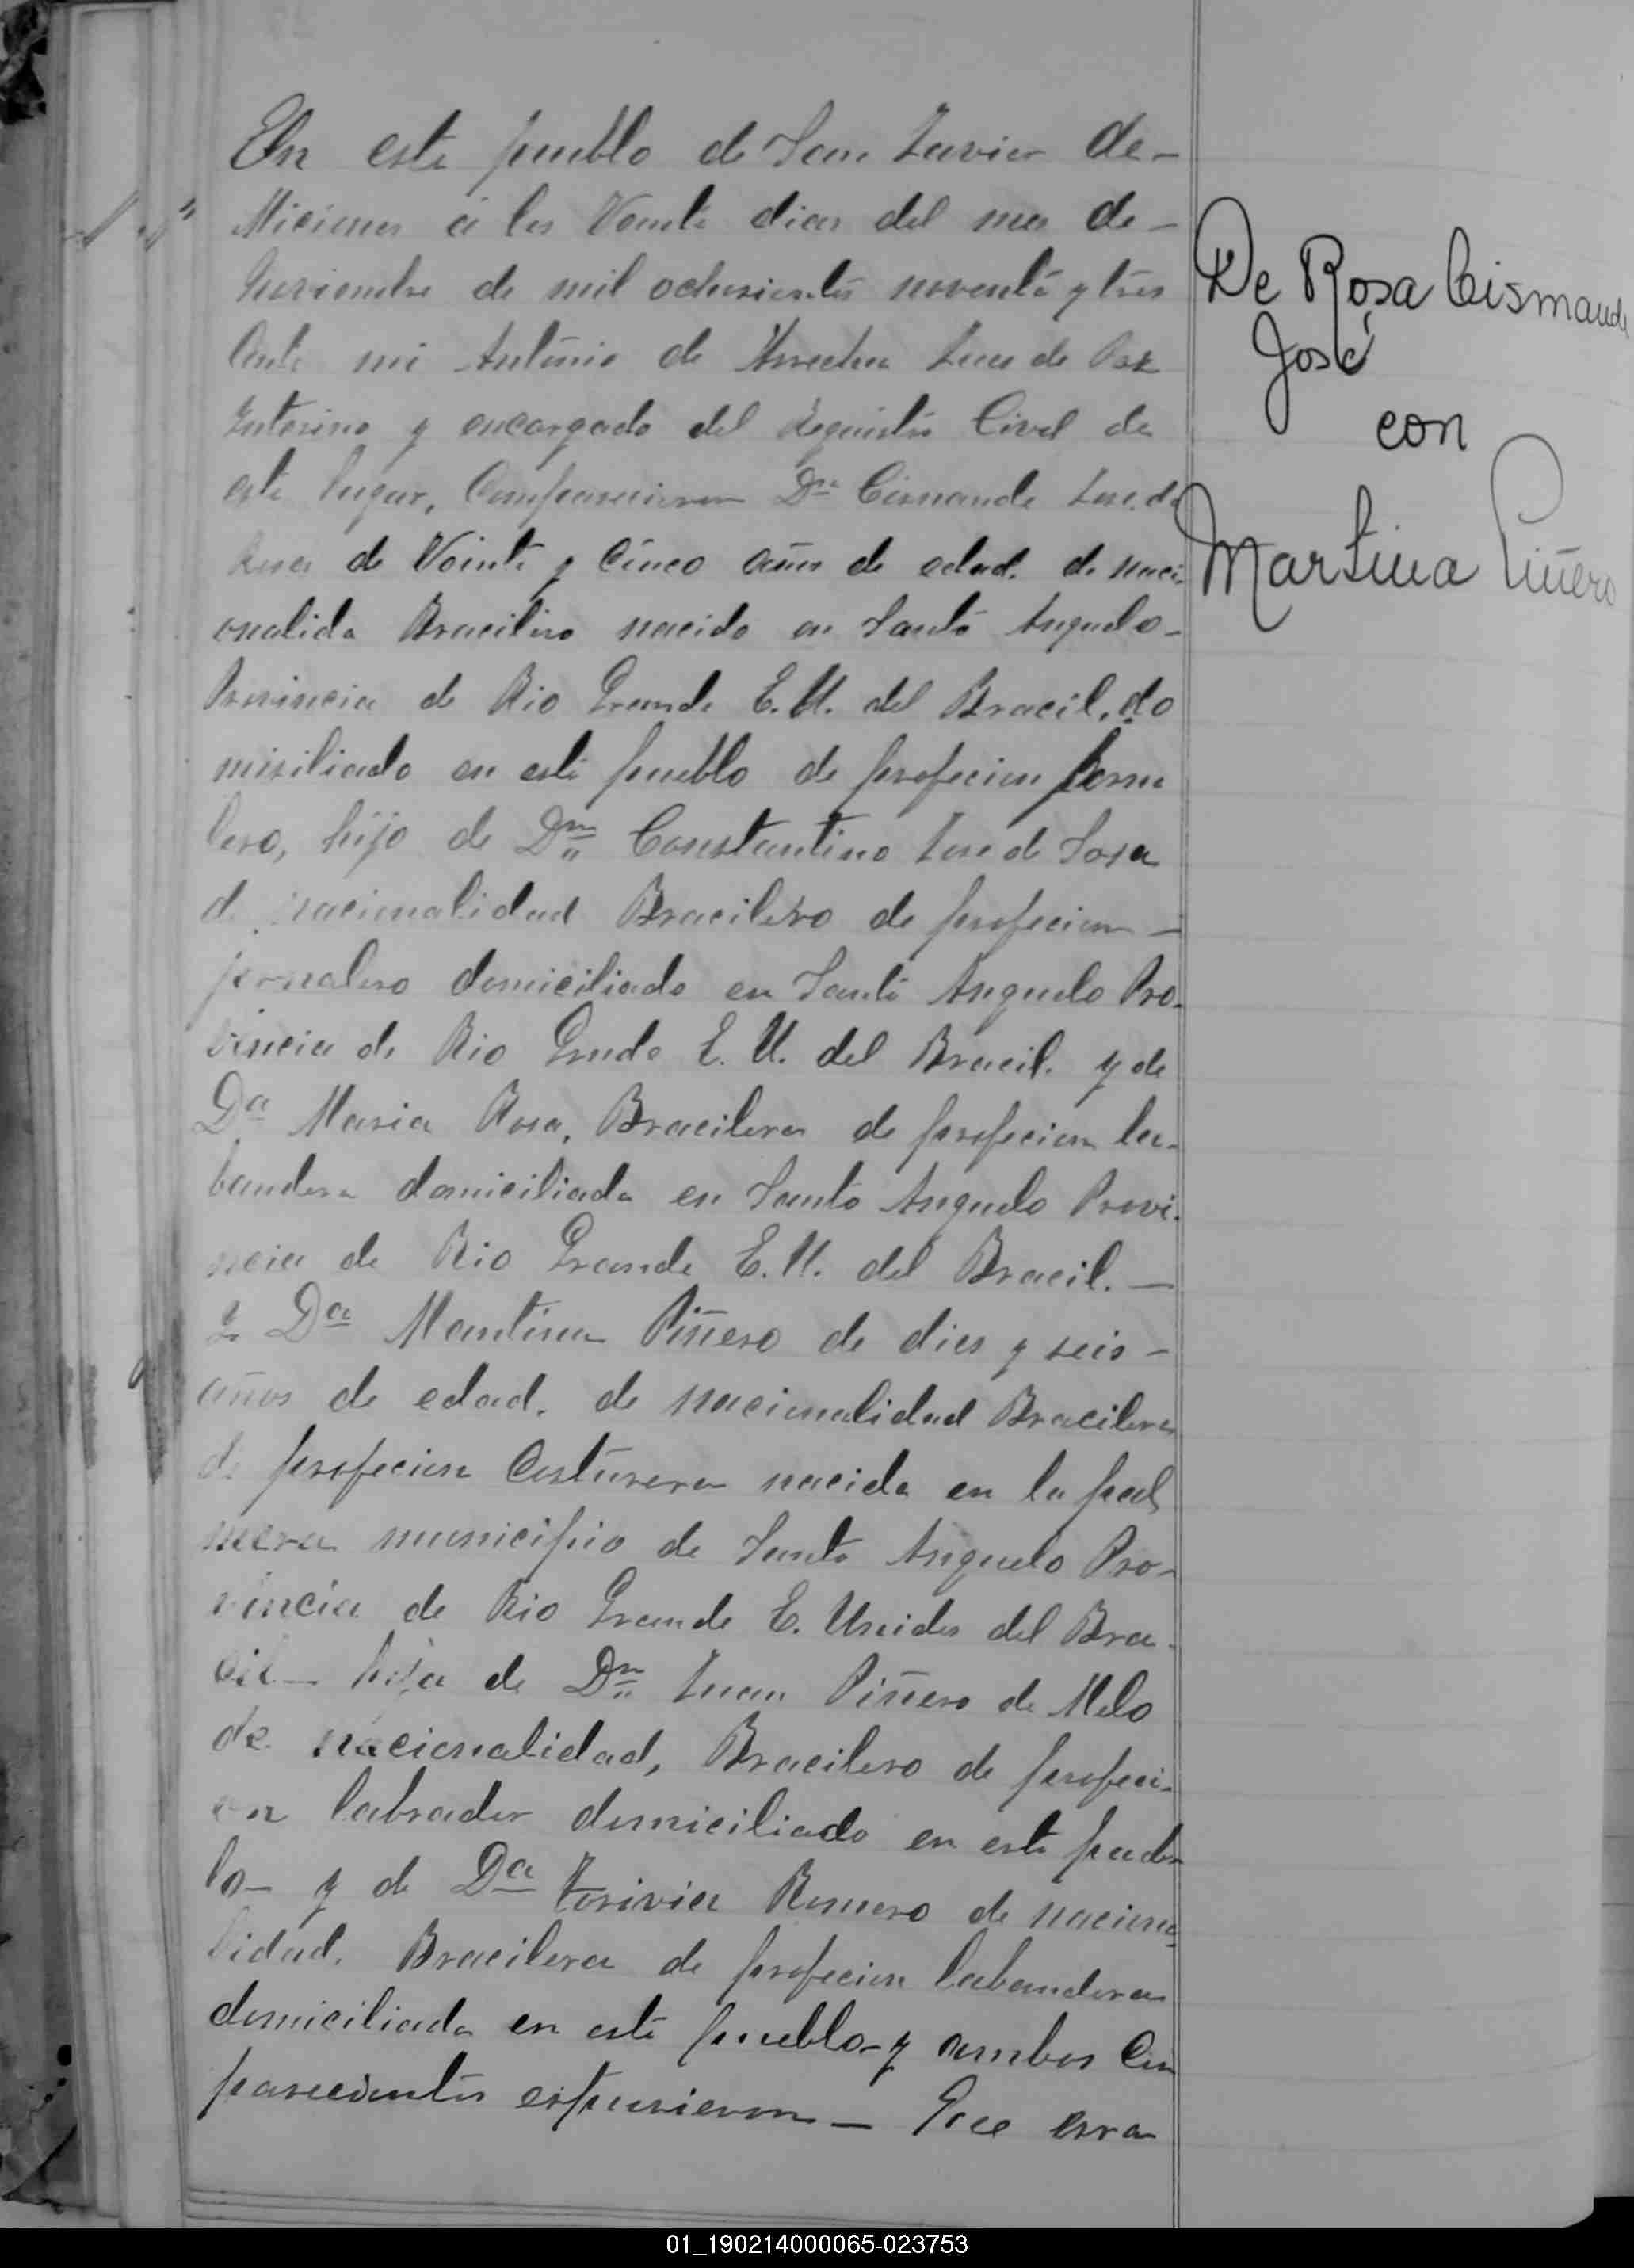 En este pueblo de San Javier de-
Miciones á los Veinte dias del mes de-
Noviembre de mil ochosientos noventa y tres
Ante mi Antonio de Arrechea Jues de Paz
Interino y encargado del Registro Civil de
este lugar, Comparecieron Dn Cismande Jose de
Rosa de Veinte y Cinco años de edad. de naci-
onalida Bracilero nacido en Santo Anguelo-
Provincia de Rio Grande E.U. del Bracil. do
misiliado en este pueblo de profecion jorna
lero, hijo de Dn Constantino Jose de Sosa
de nacionalidad Bracilero de profecion -
jornalero domiciliado en Santo Anguelo Pro-
vincia de Rio Grnde E.U. del Bracil. y de
Da Maria Rosa, Bracilera de profecion la-
bandera domiciliada en Santo Anguelo Provi-
ncia de Rio Grande E.U. del Bracil. -
y Da Mantina Piñero de dies y seis -
años de edad. de nacionalidad Bracilera
de profecion Costurera nacida en la pal
mera municipio de Santo Anguelo Pro-
vincia de Rio Grande E. Unidos del Bra-
cil - hija de Dn Juan Piñero de Melo
de nacionalidad, Bracilero de profeci-
on labrador domiciliado en este pueb-
lo - y de Da Torivia Romero de naciona
lidad. Bracilera de profecion labandera
domiciliada en este pueblo - y ambos Com
parecientes espusieron - Que era
De Rosa Cismande
José
con
Martina Piñero
01_190214000065-023753